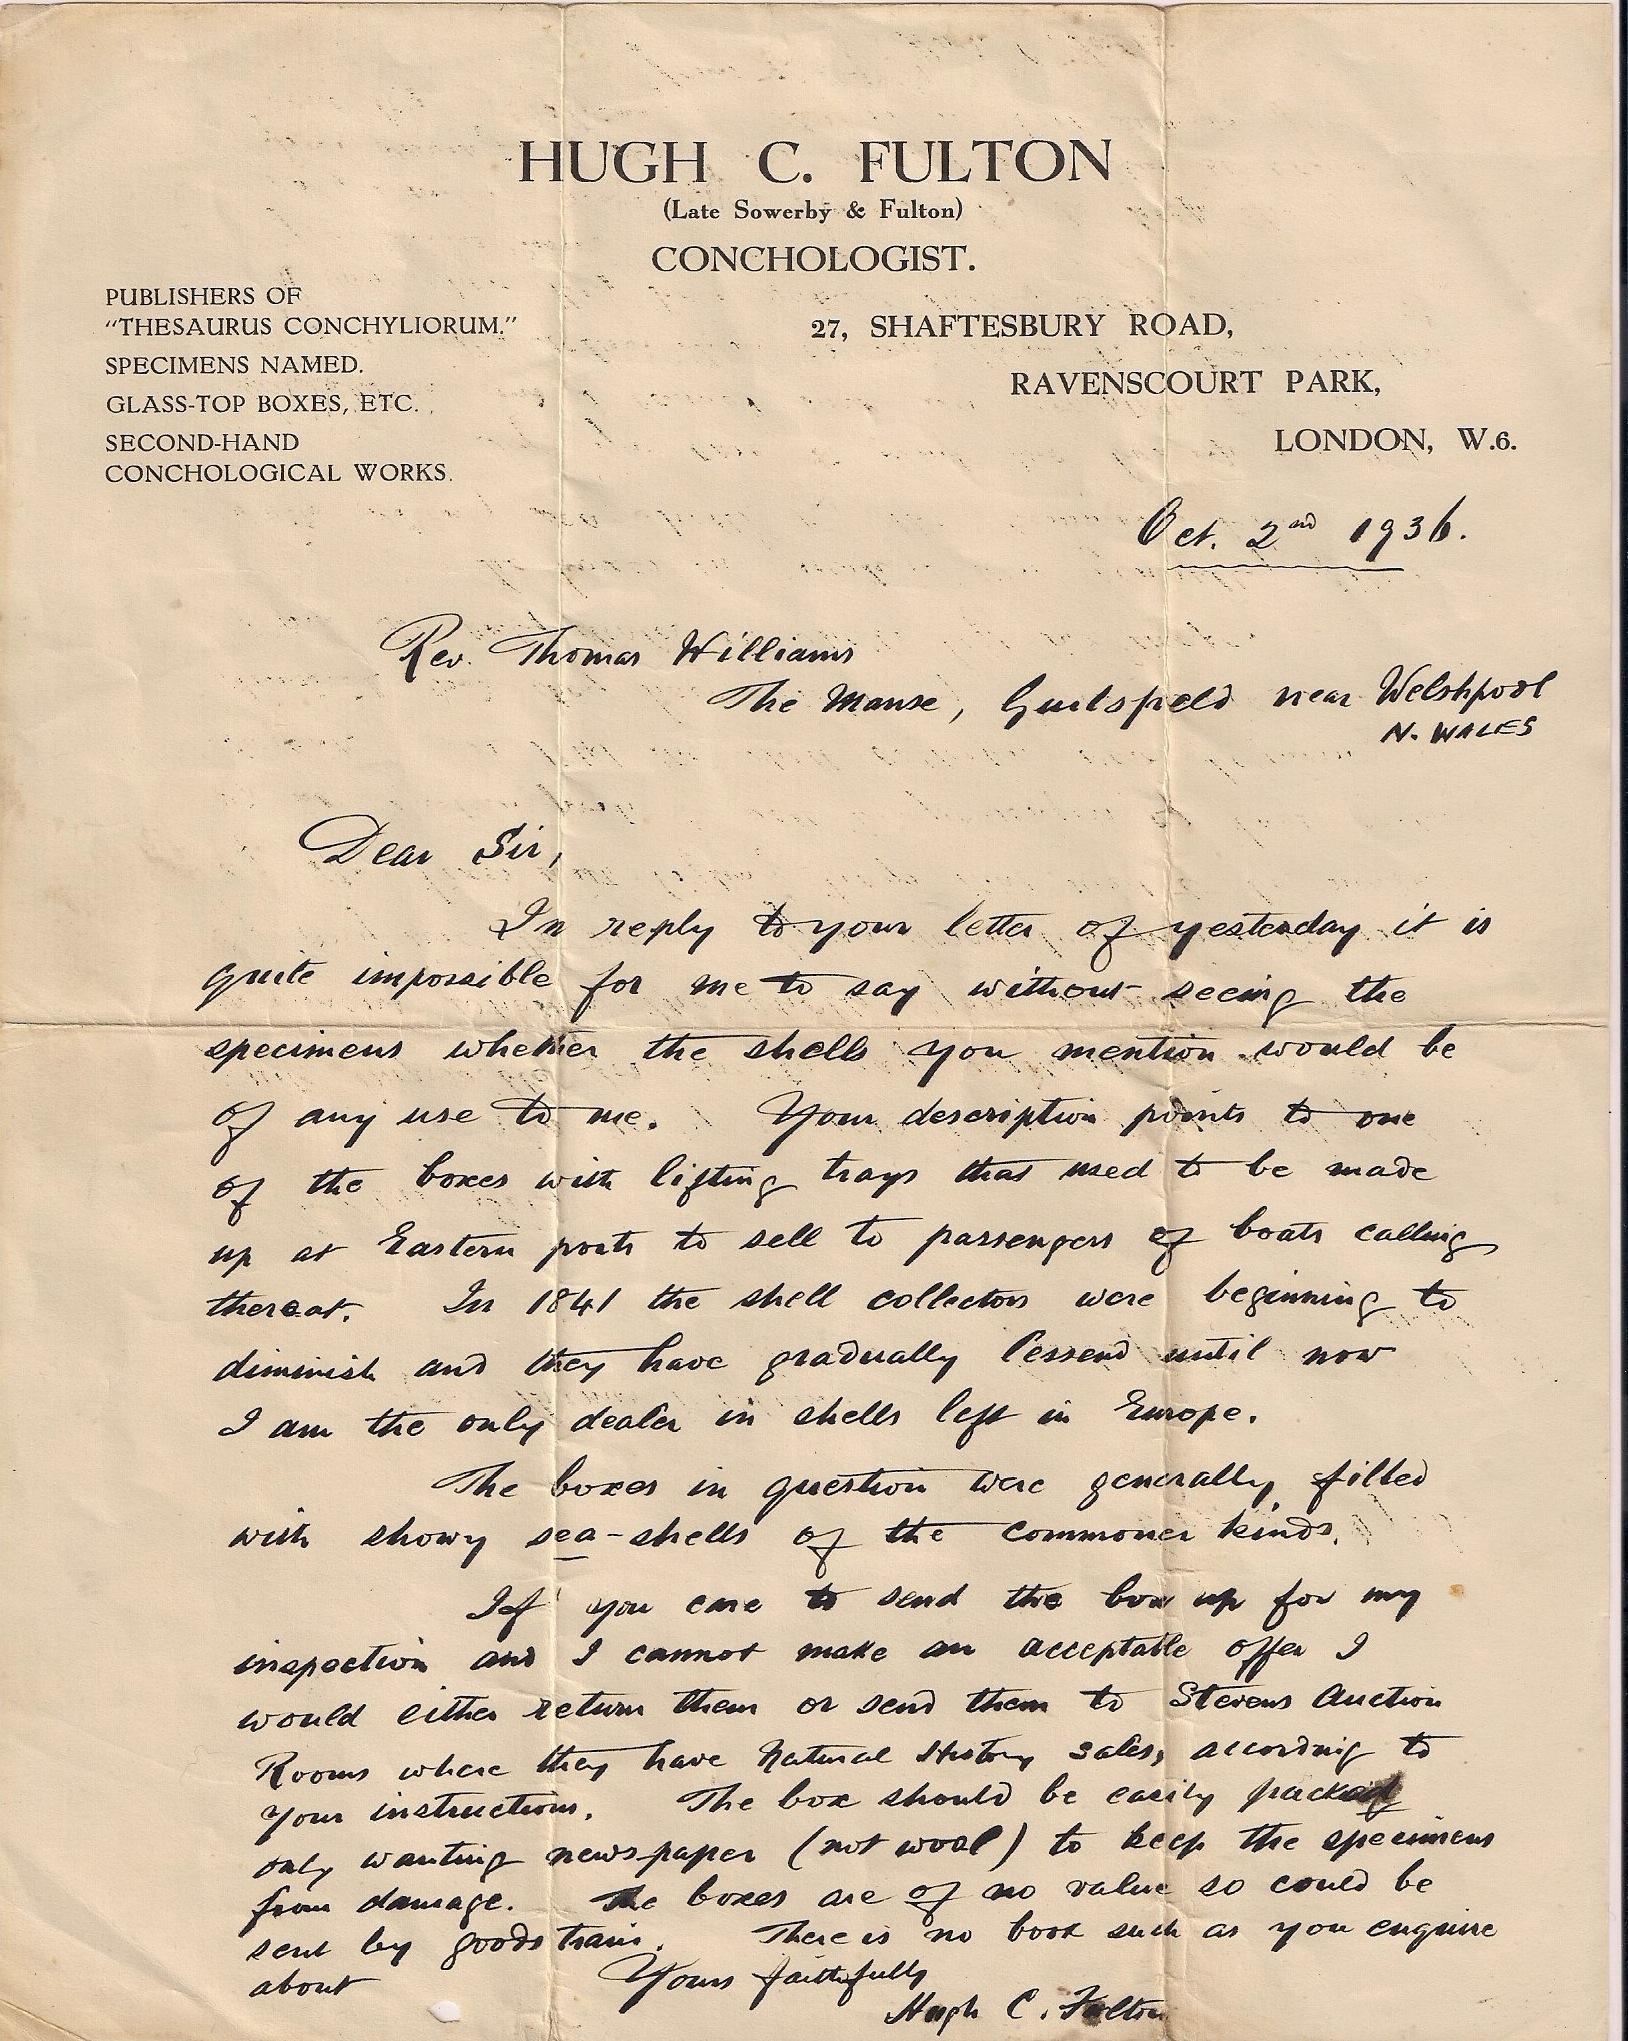 HUGH C. FULTON
(Late Sowerby & Fulton)
CONCHOLOGIST.
PUBLISHERS OF
"THESAURUS CONCHYLIORUM."
SPECIMENS NAMED.
GLASS-TOP BOXES, ETC.
SECOND-HAND
CONCHOLOGICAL WORKS.
27, SHAFTESBURY ROAD,
RAVENSCOURT PARK,
LONDON, W.6.
Oct. 2nd 1936.
Rev. Thomas Williams
The Manse, Guilsfield near Welshpool
N. WALES
Dear Sir,
In reply to your letter of yesterday it is
quite impossible for me to say without seeing the
specimens whether the shells you mention would be
of any use to me. Your description points to one
of the boxes with lifting trays that used to be made
up at Eastern ports to sell to passengers of boats calling
thereat. In 1841 the shell collectors were beginning to
diminish and they have gradually lessend until now
I am the only dealer in shells left in Europe.
The boxes in question were generally filled
with showy sea-shells of the commoner kinds.
If you care to send the box up for my
inspection and I cannot make an acceptable offer I
would either return them or send them to Stevens Auction
Rooms where they have Natural History Sales, according to
your instructions. The box should be easily packed
only wanting newspaper (not wool) to keep the specimens
from damage. The boxes are of no value so could be
sent by goods train. There is no book such as you enquire
about
Yours faithfully
Hugh C. Fulton